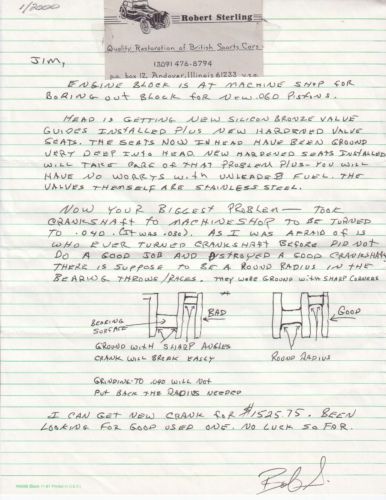 1/2000
Robert Sterling
Quality Restoration of British Sports Cars
(309) 476-8794
p.o. box 12, Andover, Illinois 61233 U.S.A.
JIM,
ENGINE BLOCK IS AT MACHINE SHOP FOR
BORING OUT BLOCK FOR NEW .060 PISTONS.
HEAD IS GETTING NEW SILICON BRONZE VALVE
GUIDES INSTALLED PLUS NEW HARDENED VALVE
SEATS. THE SEATS NOW IN HEAD HAVE BEEN GROUND
VERY DEEP INTO HEAD. NEW HARDENED SEATS INSTALLED
WILL TAKE CARE OF THAT PROBLEM PLUS - YOU WILL
HAVE NO WORRYS WITH UNLEADED FUEL. THE
VALVES THEMSELF ARE STAINLESS STEEL.
NOW YOUR BIGGEST PROBLEM — TOOK
CRANKSHAFT TO MACHINESHOP TO BE TURNED
TO .040. (IT WAS .030). AS I WAS AFRAID OF IS
WHO EVER TURNED CRANKSHAFT BEFORE DID NOT
DO A GOOD JOB AND DESTROYED A GOOD CRANKSHAFT
THERE IS SUPPOSE TO BE A ROUND RADIUS IN THE
BEARING THROWS/RACES. THEY WERE GROUND WITH SHARP CORNERS
BEARING
SURFACE
BAD
GOOD
GROUND WITH SHARP ANGLES
CRANK WILL BREAK EASLY
ROUND RADIUS
GRINDING TO .040 WILL NOT
PUT BACK THE RADIUS NEEDED
I CAN GET NEW CRANK FOR $1525.75. BEEN
LOOKING FOR GOOD USED ONE. NO LUCK SO FAR.
Bob S.